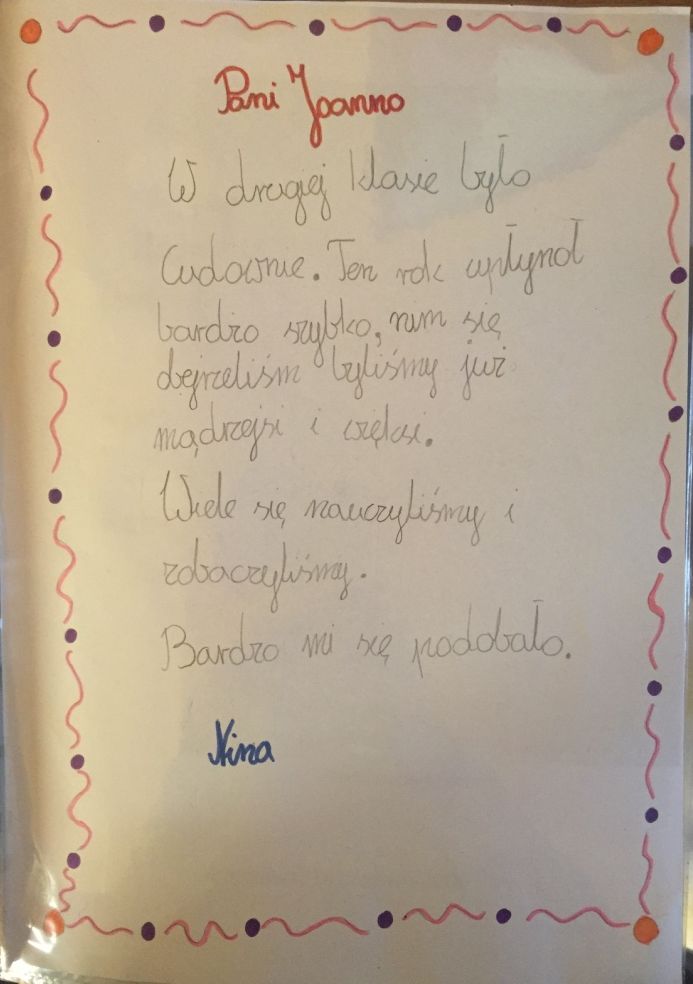 Pani Joanno
W drugiej klasie było
Cudownie. Ten rok upłynoł
bardzo szybko, nim się
dejrzeliśm byliśmy już
mądrzejsi i więksi.
Wiele się nauczyliśmy i
zobaczyliśmy.
Bardzo mi się podobało.
Nina